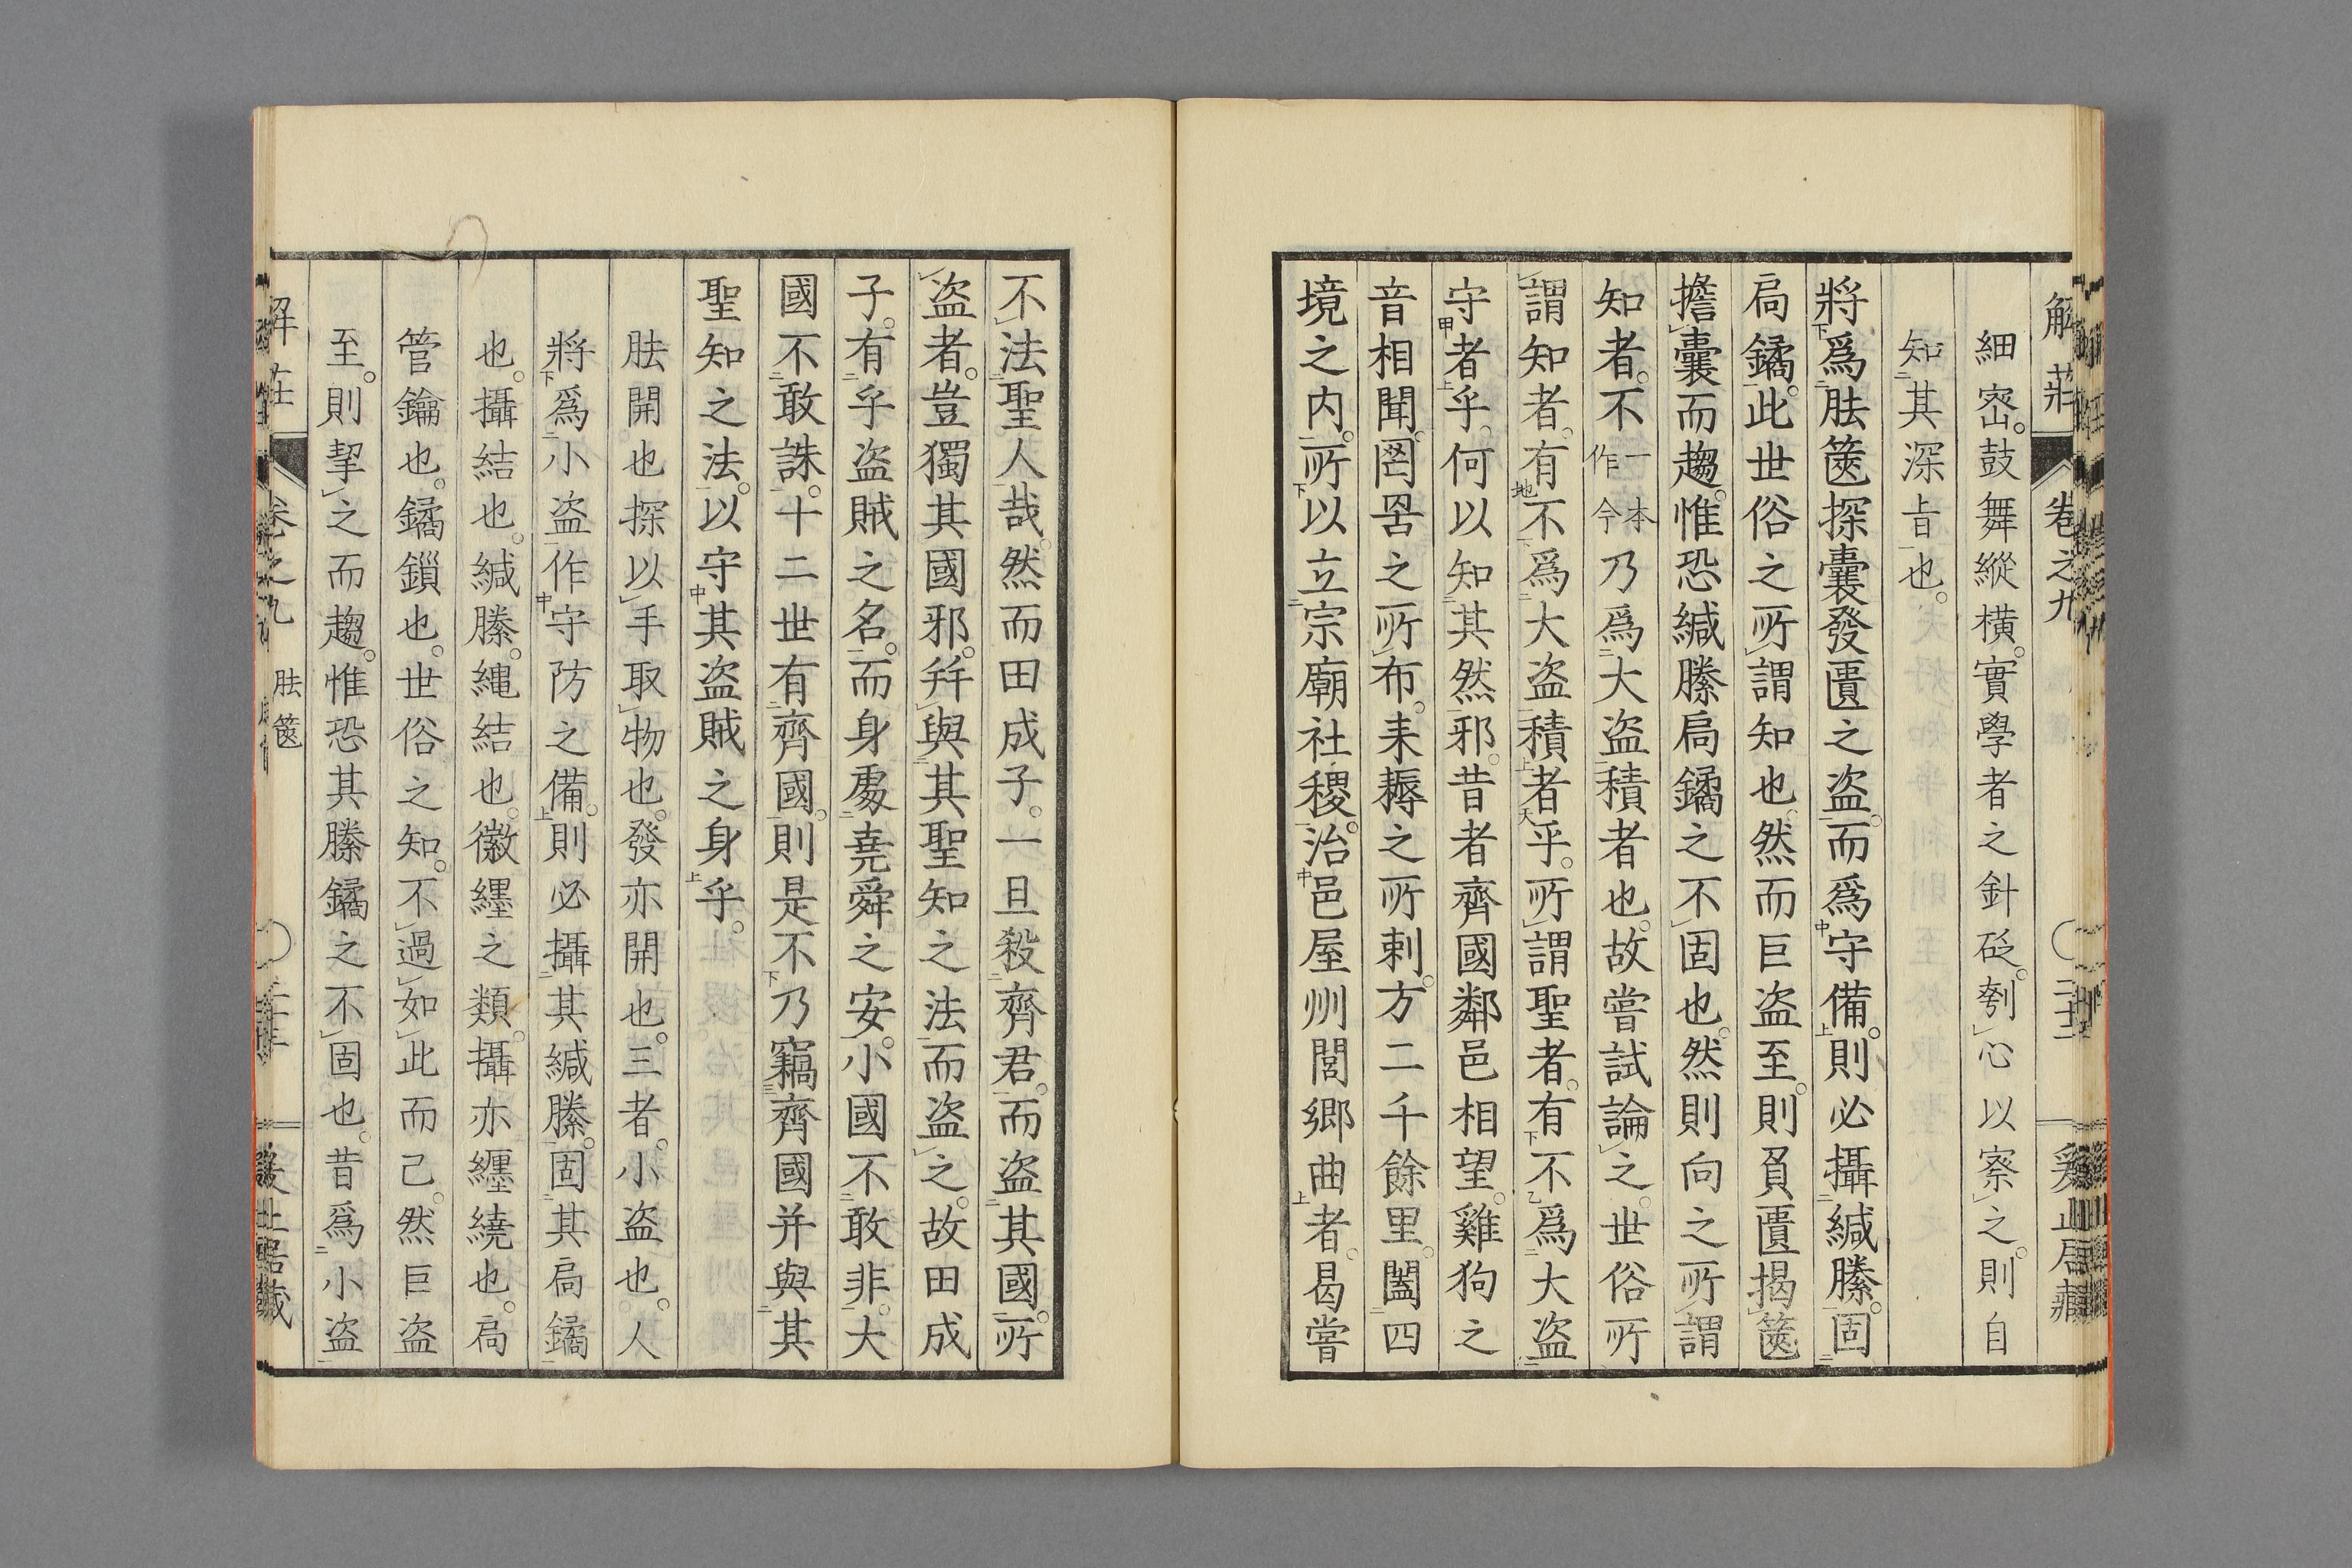 解莊 卷之九
細密。鼓舞縱橫。實學者之針砭。刳心以察之。則自
知其深旨也。
將爲胠篋探囊發匱之盜。而爲守備。則必攝緘縢。固
扃鐍。此世俗之所謂知也。然而巨盜至。則負匱揭篋
擔囊而趨。惟恐緘縢扃鐍之不固也。然則向之所謂
知者。不一本作今乃爲大盜積者也。故嘗試論之。世俗所
謂知者。有不爲大盜積者乎。所謂聖者。有不爲大盜
守者乎。何以知其然邪。昔者齊國鄰邑相望。雞狗之
音相聞。罔罟之所布。耒耨之所刺。方二千餘里。闔四
境之內。所以立宗廟社稷。治邑屋州閭鄉曲者。曷嘗
不法聖人哉。然而田成子。一旦殺齊君。而盜其國。所
盜者。豈獨其國邪。并與其聖知之法。而盜之。故田成
子。有乎盜賊之名。而身處堯舜之安。小國不敢非。大
國不敢誅。十二世有齊國。則是不乃竊齊國并與其
聖知之法。以守其盜賊之身乎。
胠開也探以手取物也。發亦開也。三者。小盜也。人
將爲小盜作守防之備。則必攝其緘縢。固其扃鐍
也。攝結也。緘縢。繩結也。徽纆之類。攝亦纏繞也。扃
管鑰也。鐍鎖也。世俗之知。不過如此而已。然巨盜
至。則挈之而趨。惟恐其縢鐍之不固也。昔爲小盜
胠篋